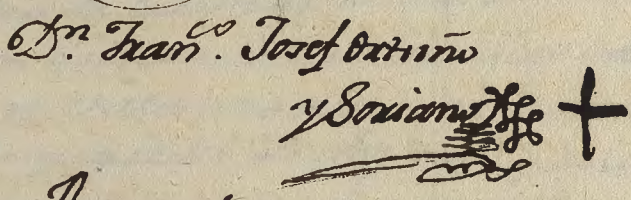 Dn. Franco. Josef Ortuño
y Soriano